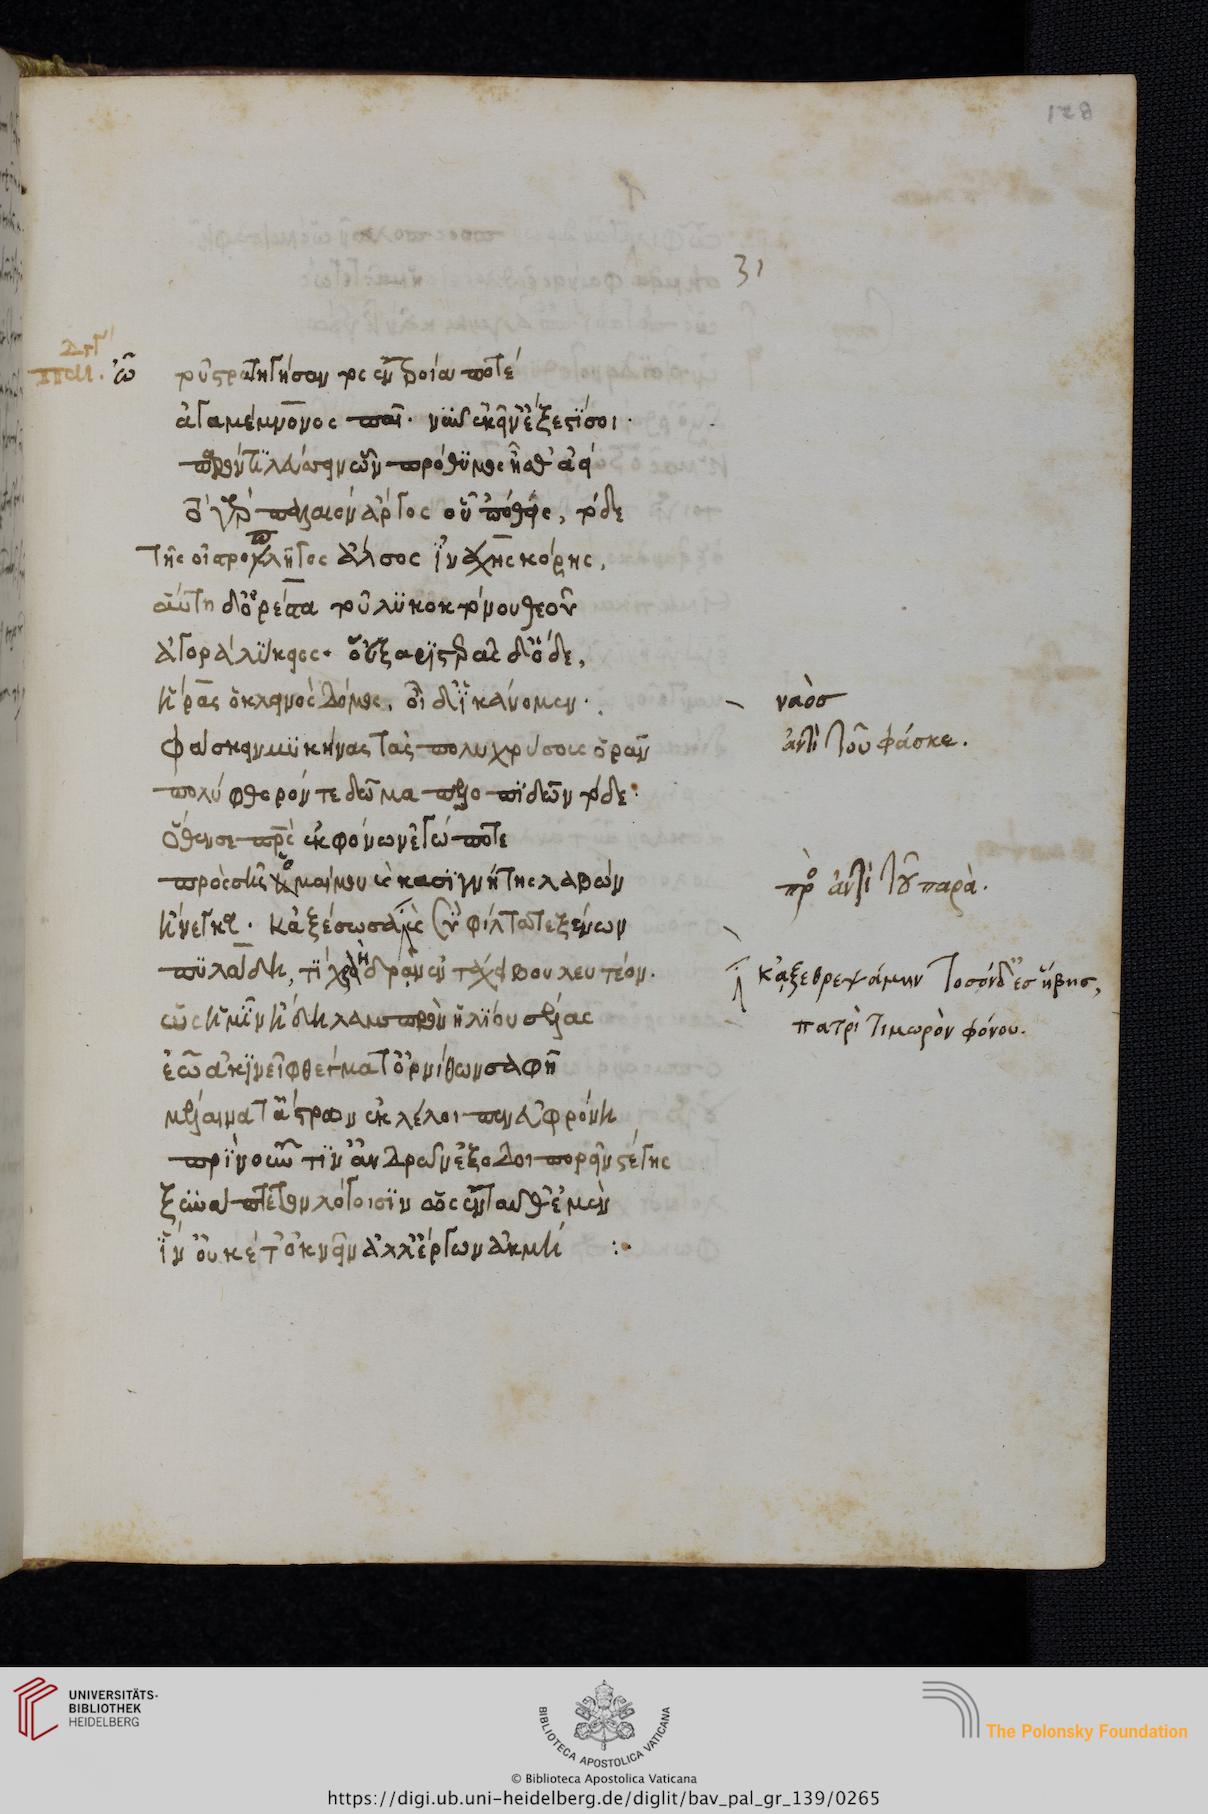 128
31
ὦ τοῦ στρατηγήσαντος ἐν τροίᾳ ποτέ
ἀγαμέμνονος παῖ· νῦν ἐκεῖν' ἔξεστί σοι·
παρόντι λεύσσειν ὧν πρόθυμος ἦσθ' ἀεί
τὸ γὰρ παλαιὸν ἄργος οὑπόθεις, τόδε
τῆς οἰστροπλῆγος ἄλσος ἰνάχης κόρης,
αὕτη δ' ὀρέστα τοῦ λυκοκτόνου θεοῦ
ἀγορὰ λύκειος· οὑξ ἀριστερᾶς δ' ὅδε,
ἥρας ὁ κλεινὸς δόμος, οἷ δ' ἱκάνομεν·
φάσκειν μυκήνας τὰς πολυχρύσους ὁρᾶν
πολύφθορόν τε δῶμα πελοπιδῶν τόδε·
ὅθεν σε πατρὸς ἐκ φόνων ἐγώ ποτε
πρὸς σῆς ὁμαίμου καὶ κασιγνήτης λαβών
ἤνεγκα· κἀξέσωσα καὶ σὺ φίλτατε ξένων
πυλάδη, τί χρὴ δρᾶν ἐν τάχει βουλευτέον·
ὡς ἡμῖν ἤδη λαμπρὸν ἡλίου σέλας
ἑῶα κινεῖ φθέγματ' ὀρνίθων σαφῆ
μέλαινά τ' ἄστρων ἐκλέλοιπεν εὐφρόνη
πρὶν οὖν τιν' ἀνδρῶν ἐξοδοιπορεῖν στέγης
ξυνάπτετον λόγοισιν ὡς ἐνταῦθ' ἐμὲν
ἵν' οὐκέτ' ὀκνεῖν ἀλλ' ἔργων ἀκμή :·
ναὸσ
ἀντὶ τοῦ φάσκε.
πρὸ ἀντὶ τοῦ παρὰ.
κἀξεθρεψάμην τοσόνδ' ἐσ ἥβησ,
πατρὶ τιμωρὸν φόνου.
UNIVERSITÄTS-
BIBLIOTHEK
HEIDELBERG
BIBLIOTECA APOSTOLICA VATICANA
The Polonsky Foundation
© Biblioteca Apostolica Vaticana
https://digi.ub.uni-heidelberg.de/diglit/bav_pal_gr_139/0265